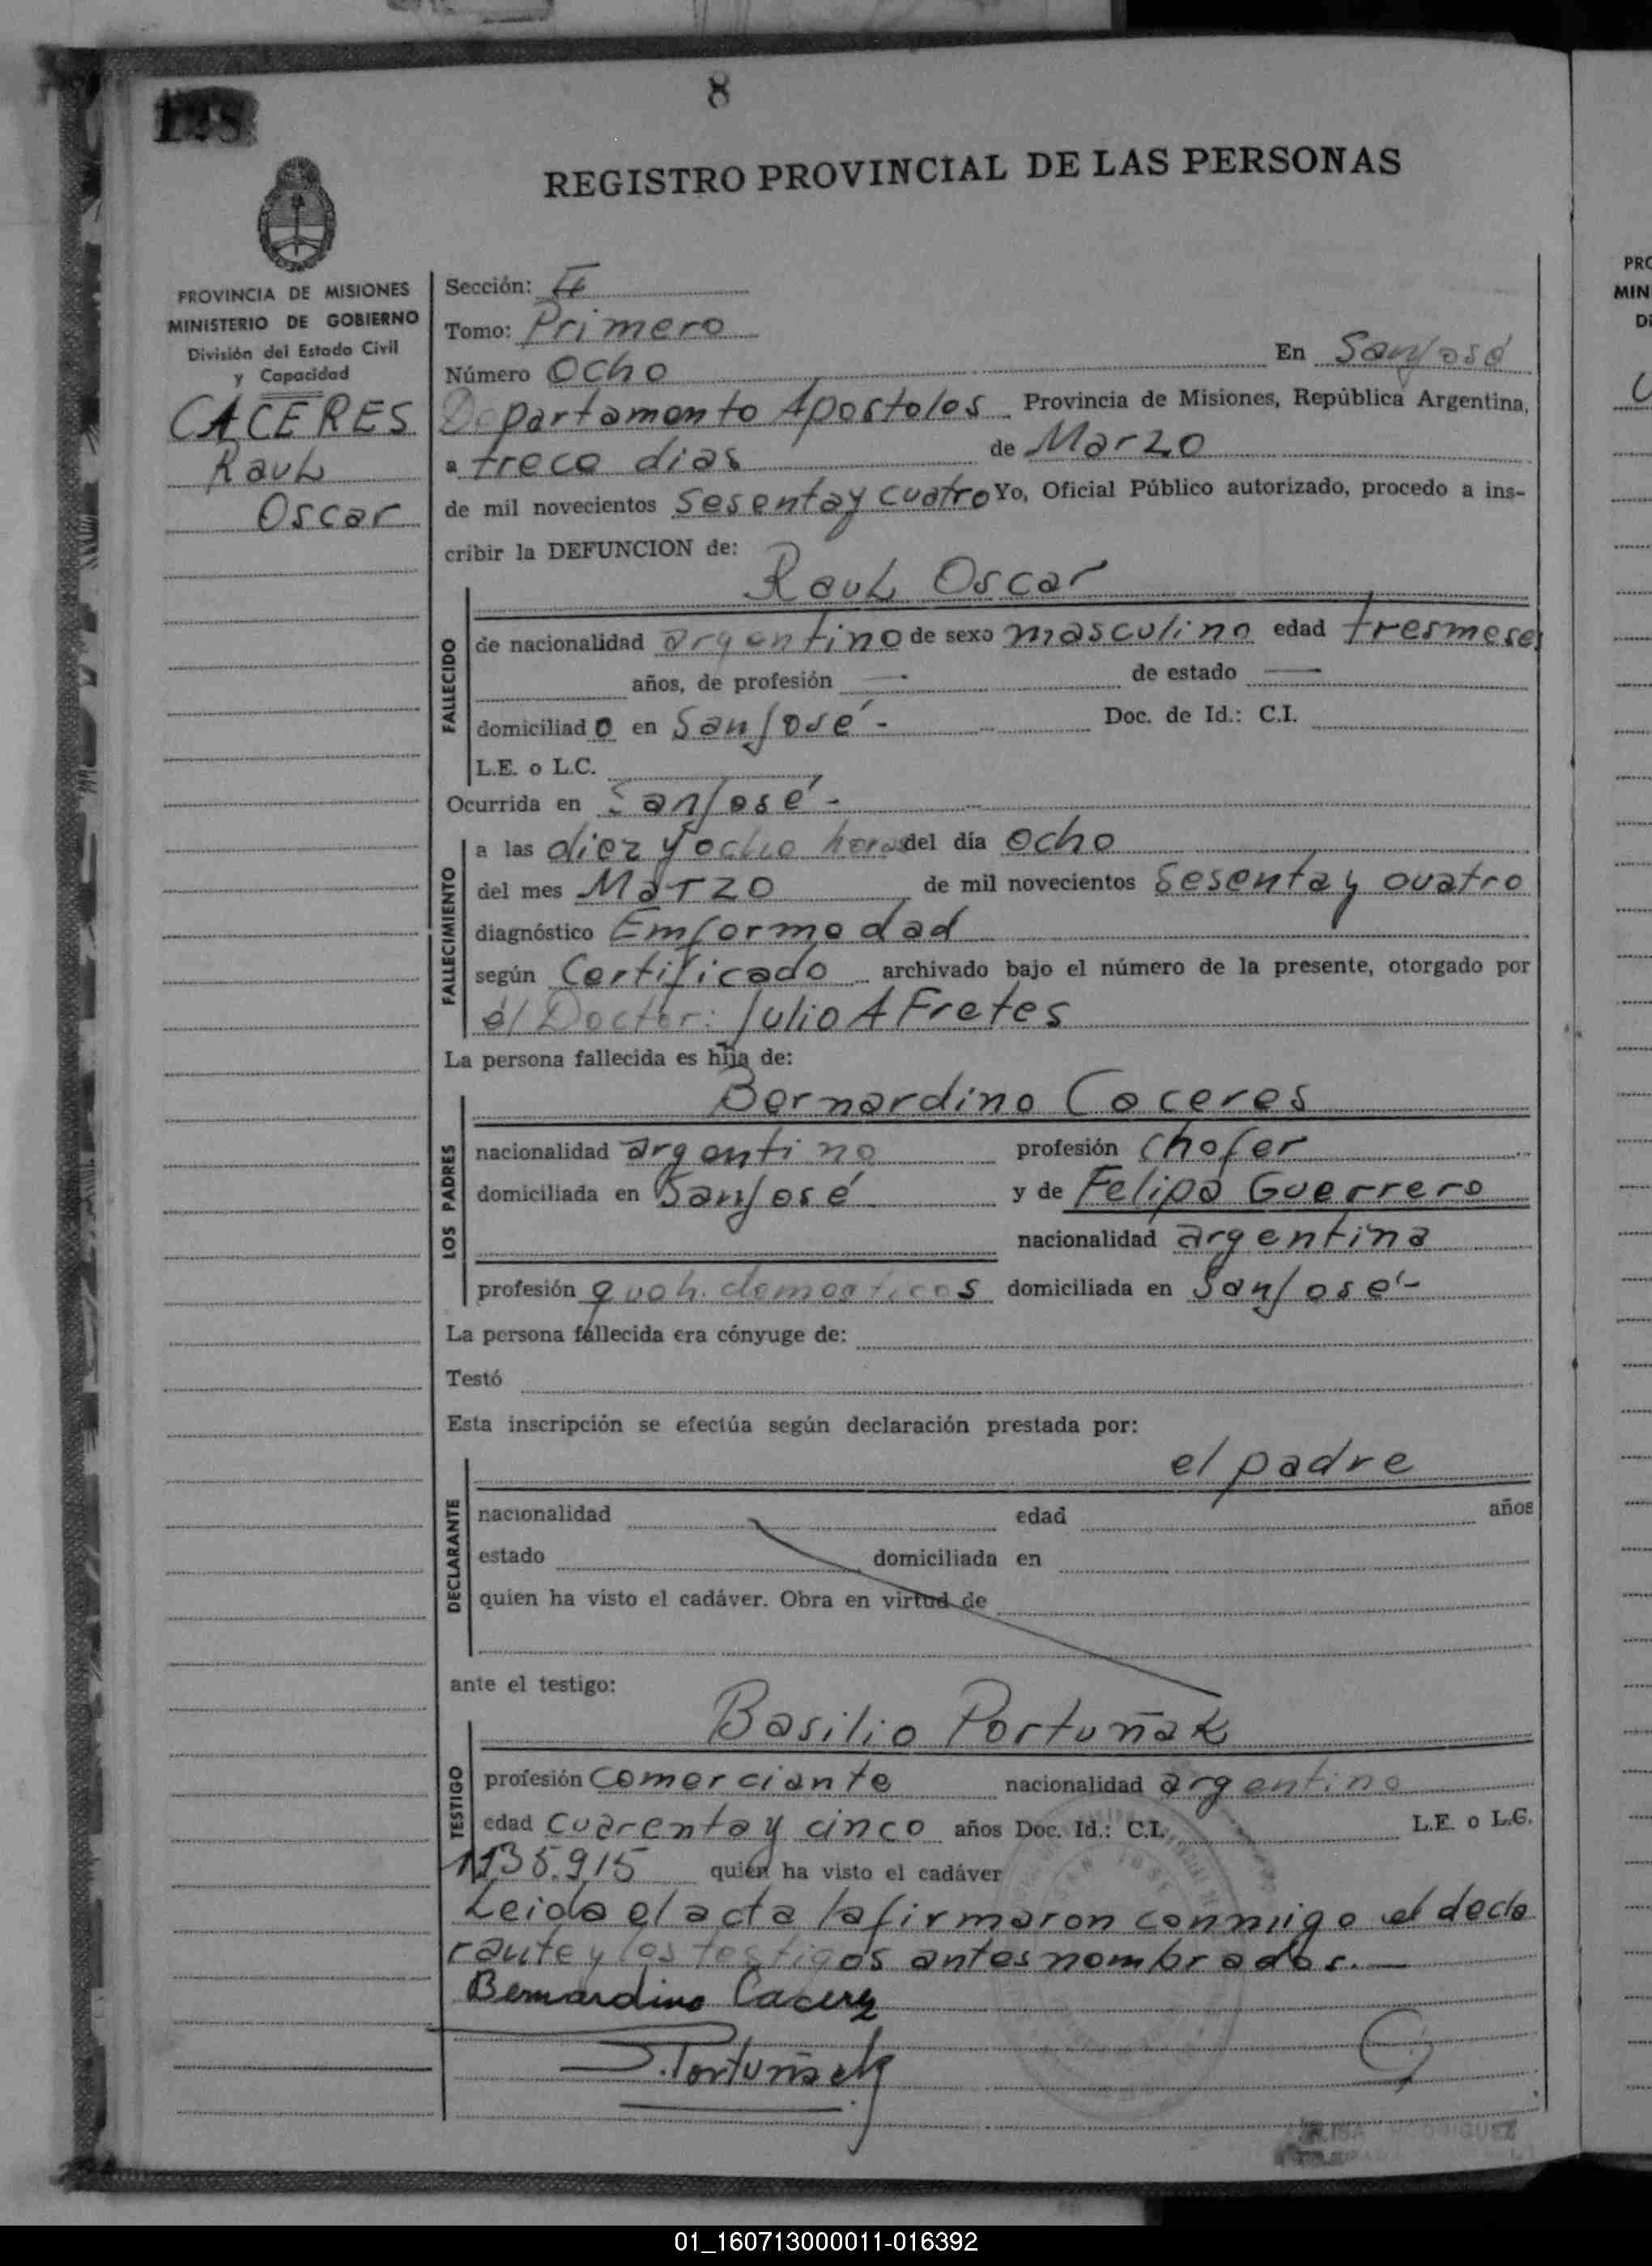 8
128
REGISTRO PROVINCIAL DE LAS PERSONAS
PROVINCIA DE MISIONES
MINISTERIO DE GOBIERNO
División del Estado Civil
y Capacidad
CACERES
Raul
Oscar
Sección:
Tomo: Primero
Número Ocho En San José
Departamento Apostoles Provincia de Misiones, República Argentina,
a trece dias de Marzo
de mil novecientos Sesenta y cuatro Yo, Oficial Público autorizado, procedo a ins-
cribir la DEFUNCION de:
Raul Oscar
FALLECIDO
de nacionalidad argentino de sexo masculino edad tres meses
años, de profesión — de estado —
domiciliado en San José - Doc. de Id.: C.I.
L.E. o L.C.
Ocurrida en San José -
FALLECIMIENTO
a las diez y ocho horas del día ocho
del mes Marzo de mil novecientos Sesenta y cuatro
diagnóstico Emformedad
según Certificado archivado bajo el número de la presente, otorgado por
el Doctor: Julio A Fretes
La persona fallecida es hija de:
Bernardino Caceres
LOS PADRES
nacionalidad argentino profesión chofer
domiciliada en San José y de Felipa Guerrero
nacionalidad argentina
profesión domiciliada en San José -
La persona fallecida era cónyuge de:
Testó
Esta inscripción se efectúa según declaración prestada por:
el padre
DECLARANTE
nacionalidad edad años
estado domiciliada en
quien ha visto el cadáver. Obra en virtud de
ante el testigo:
Basilio Portuñak
TESTIGO
profesión comerciante nacionalidad argentino
edad cuarenta y cinco años Doc. Id.: C.I. L.E. o L.C.
1.135.915 quien ha visto el cadáver
Leida el acta la firmaron conmigo el decla
rante y los testigos antes nombrados. —
Bernardino Cacerez
Portuñak
RODRIGUEZ
01_160713000011-016392